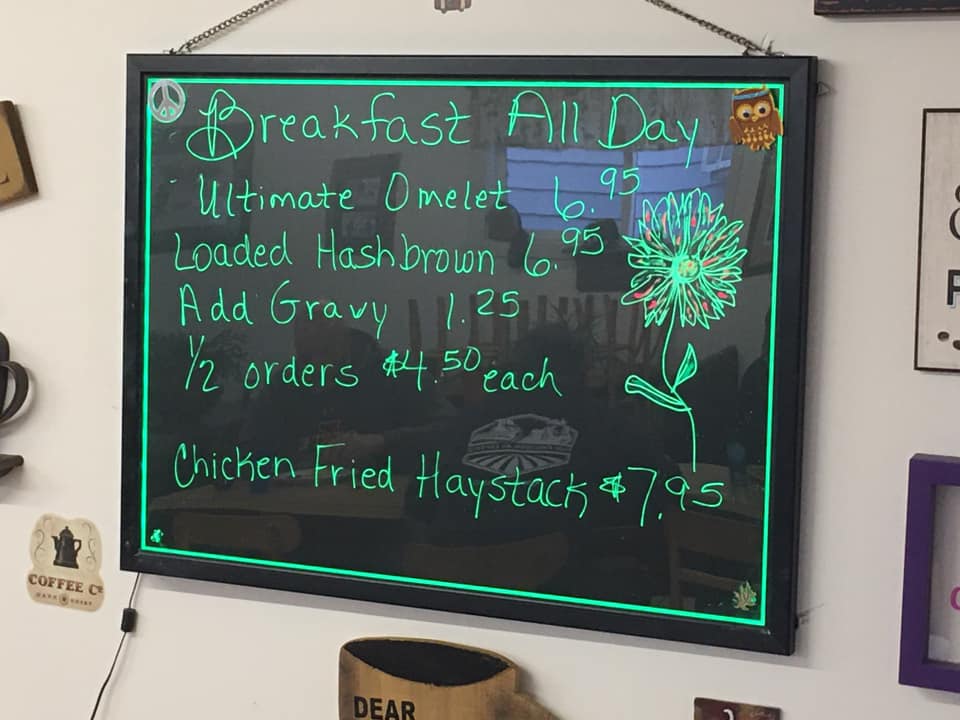 Breakfast All Day
Ultimate Omelet 6.95
Loaded Hashbrown 6.95
Add Gravy 1.25
1/2 orders $4.50 each
Chicken Fried Haystack $7.95
COFFEE Co
DEAR